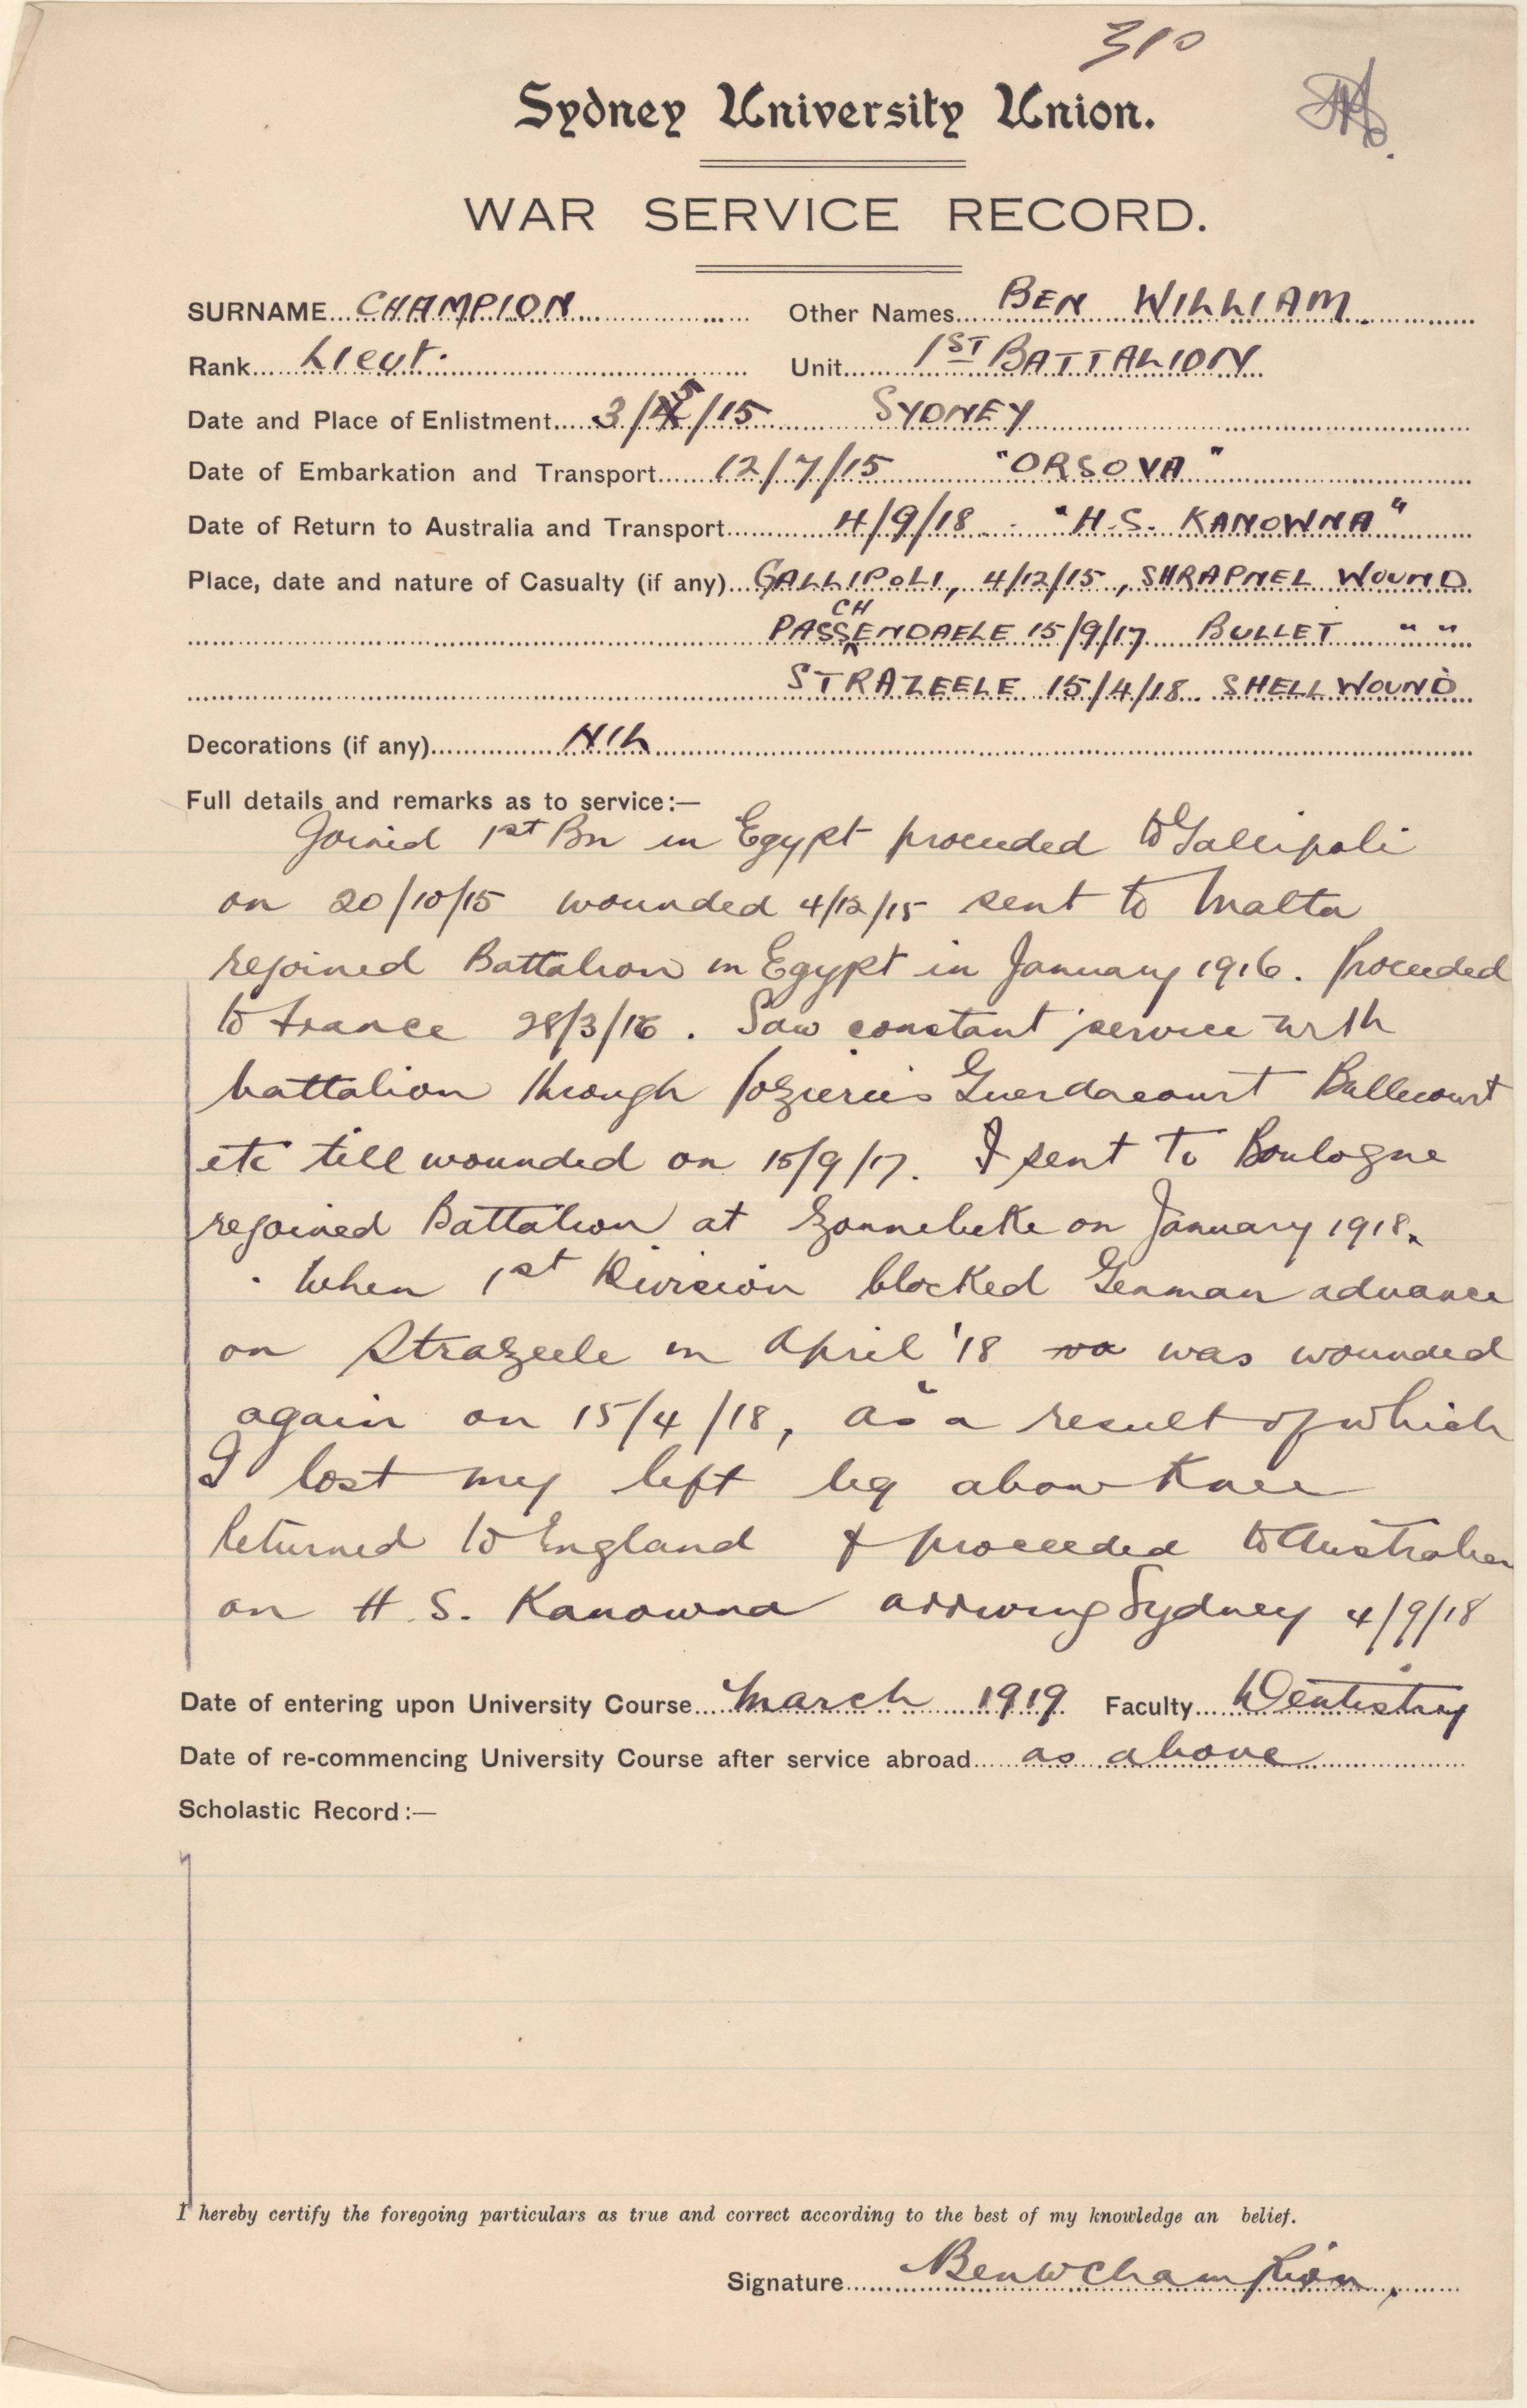 310
Sydney University Union.
WAR SERVICE RECORD.
SURNAME CHAMPION Other Names BEN WILLIAM.
Rank Lieut. Unit 1ST BATTALION
Date and Place of Enlistment 3/5/15 SYDNEY
Date of Embarkation and Transport 12/7/15 "ORSOVA"
Date of Return to Australia and Transport 4/9/18 "H.S. KANOWNA"
Place, date and nature of Casualty (if any) GALLIPOLI, 4/12/15, SHRAPNEL WOUND
PASSCHENDAELE 15/9/17 BULLET " "
STRAZEELE 15/4/18 SHELL WOUND
Decorations (if any) NIL
Full details and remarks as to service:—
Joined 1st Bn in Egypt proceeded to Gallipoli
on 20/10/15 wounded 4/12/15 sent to Malta
rejoined Battalion in Egypt in January 1916. Proceeded
to France 28/3/16. Saw constant service with
battalion through Pozieries Guerdacourt Bullecourt
etc till wounded on 15/9/17. I sent to Boulogne
rejoined Battalion at Zonnebeke on January 1918.
When 1st Division blocked German advance
on Strazeele in April '18 was wounded
again on 15/4/18, as a result of which
I lost my left leg above knee
Returned to England & proceeded to Australia
on H.S. Kanowna arriving Sydney 4/9/18
Date of entering upon University Course March 1919 Faculty Dentistry
Date of re-commencing University Course after service abroad as above
Scholastic Record:—
I hereby certify the foregoing particulars as true and correct according to the best of my knowledge an belief.
Signature Ben W Champion,